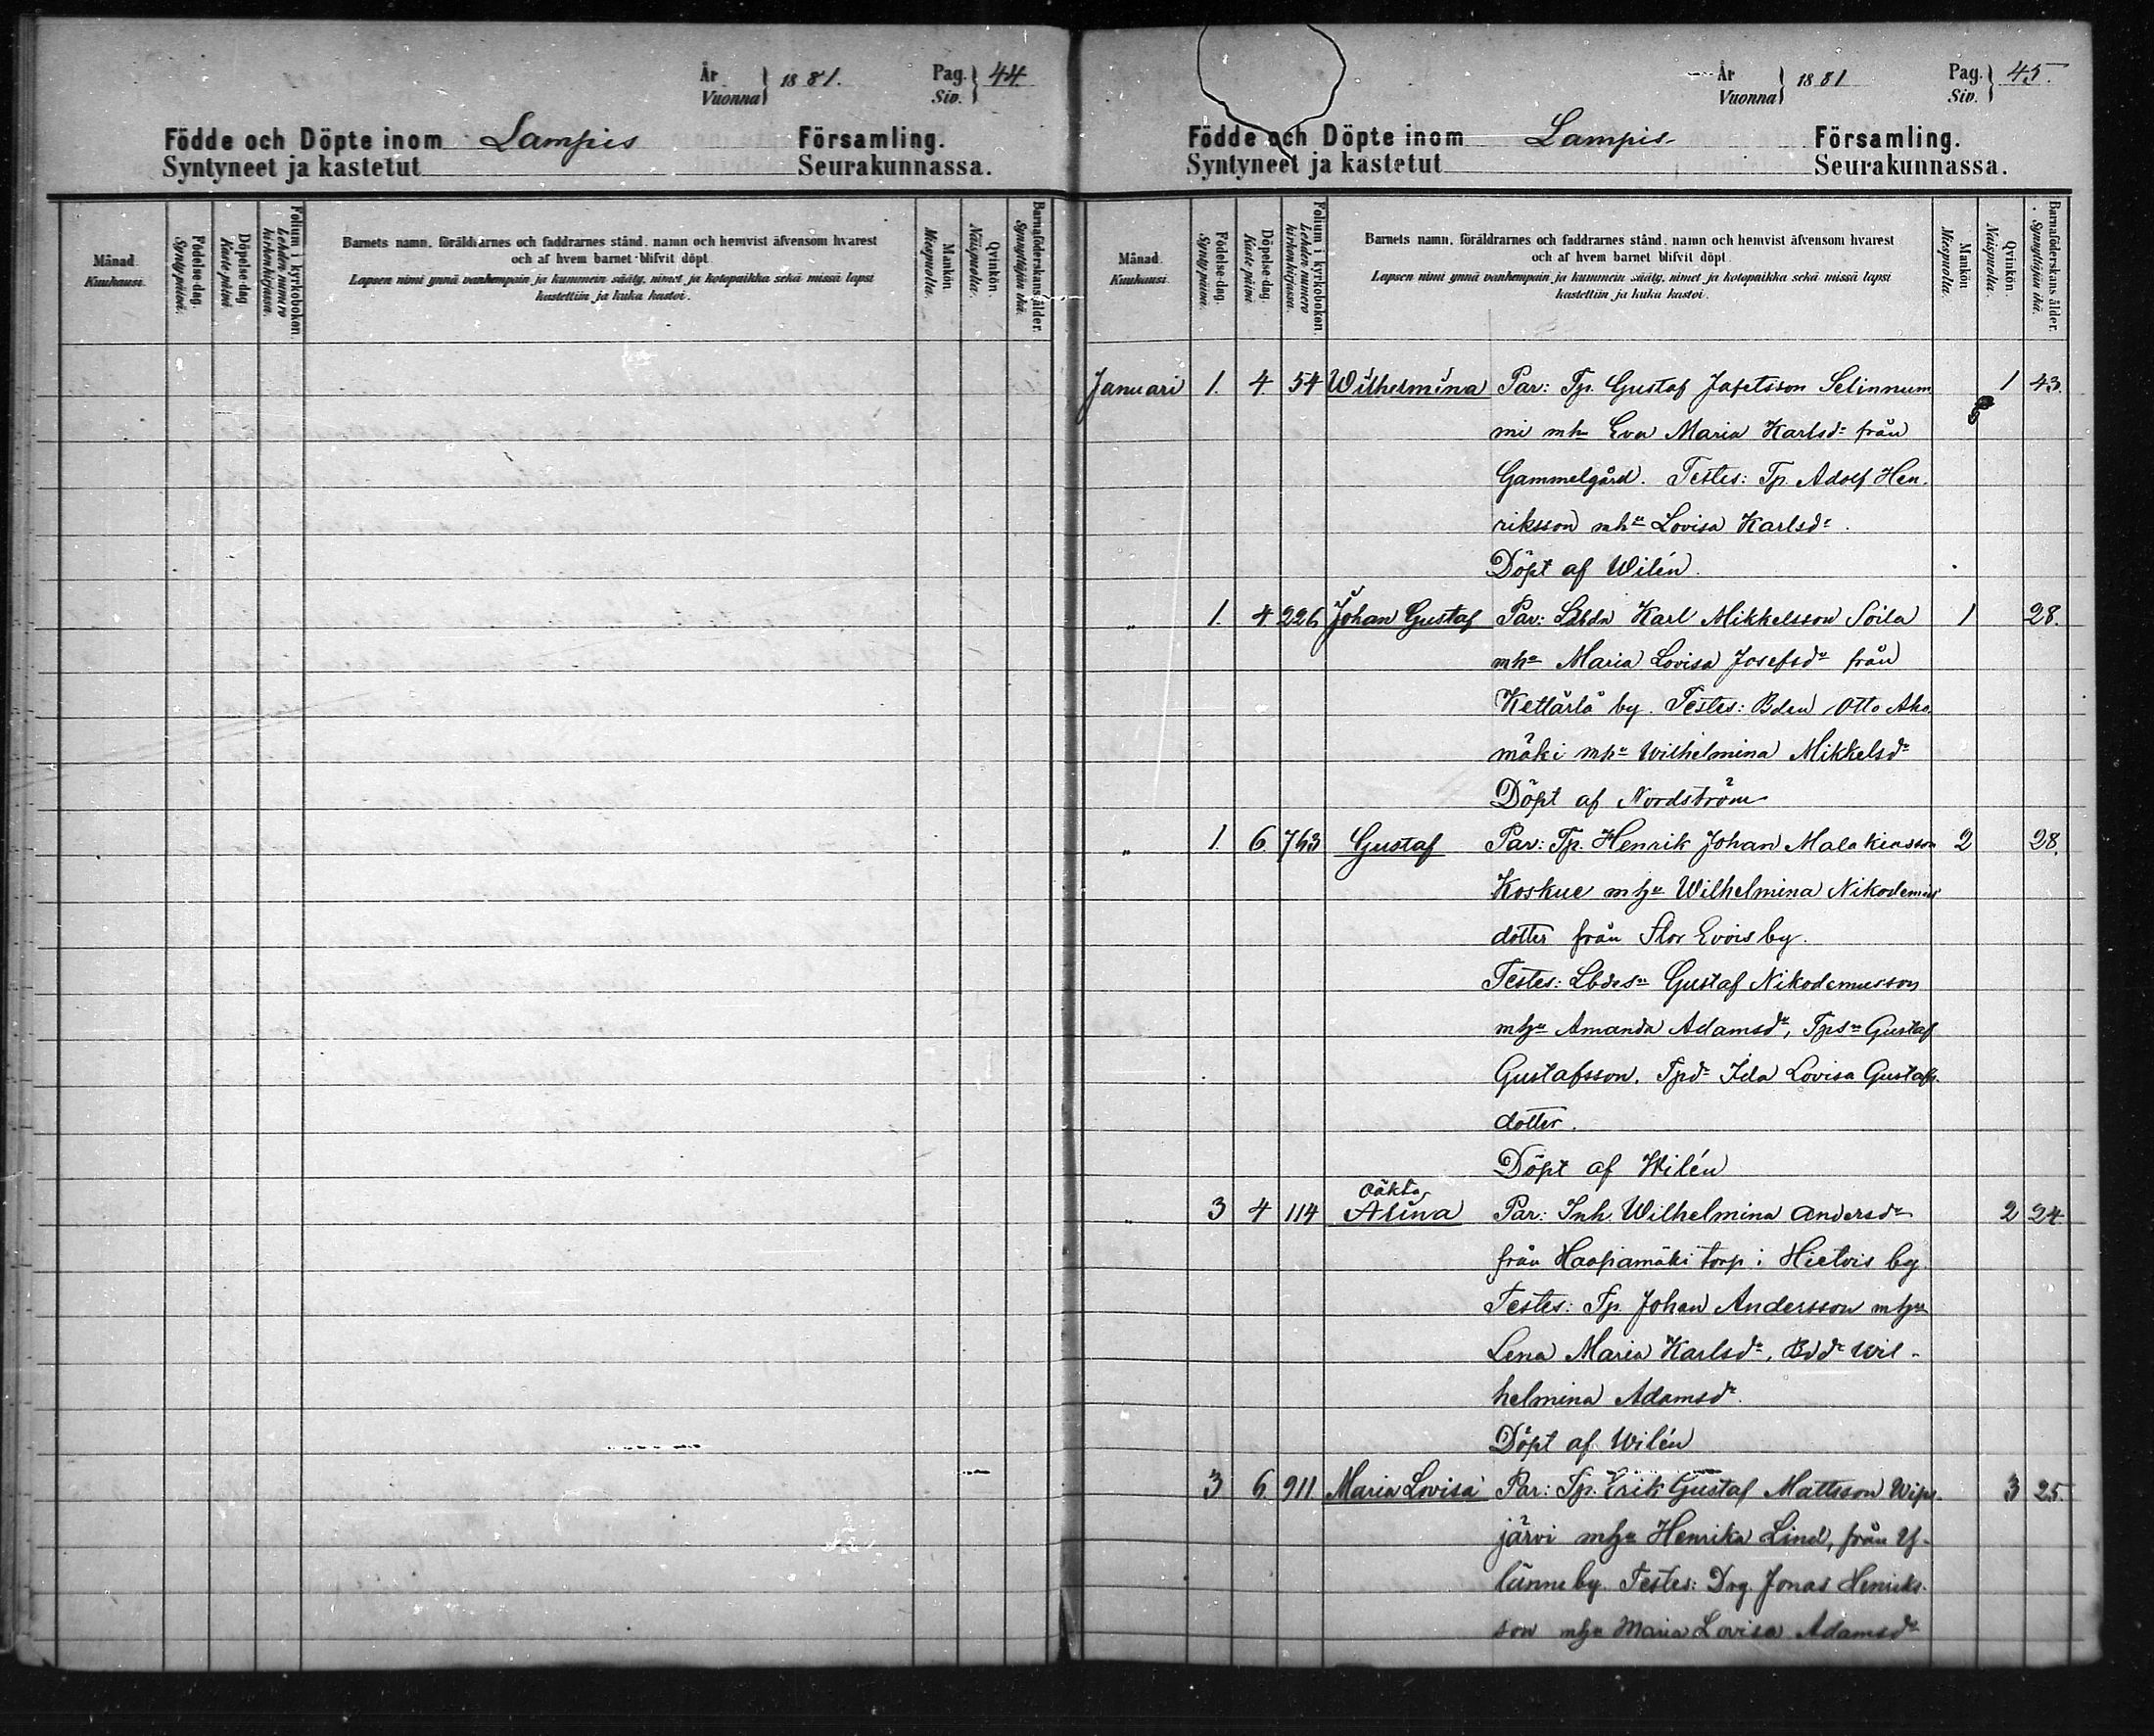 År
Vuonna } 1881.
Pag.
Siv. } 44.
Födde och Döpte inom Lampis Församling.
Syntyneet ja kastetut Seurakunnassa.
Månad.
Kuukausi.
Födelse-dag.
Syntypäivä.
Döpelse-dag.
Kastepäivä.
Folium i kyrkobokon.
Lehden numero
kirkonkirjassa.
Barnets namn, föräldrarnes och faddrarnes stånd, namn och hemvist äfvensom hvarest
och af hvem barnet blifvit döpt.
Lapsen nimi ynnä vanhempain ja kummein sääty, nimet ja kotopaikka sekä missä lapsi
kastettiin ja kuka kastoi.
Mankön.
Miespuolta.
Qvinkön.
Naispuolta.
Barnaföderskans ålder.
Synnyttäjän ikä.
År
Vuonna } 1881
Pag.
Siv. } 45.
Födde och Döpte inom Lampis Församling.
Syntyneet ja kastetut Seurakunnassa.
Månad.
Kuukausi.
Födelse-dag.
Syntypäivä.
Döpelse-dag.
Kastepäivä.
Folium i kyrkobokon.
Lehden numero
kirkonkirjassa.
Barnets namn, föräldrarnes och faddrarnes stånd, namn och hemvist äfvensom hvarest
och af hvem barnet blifvit döpt.
Lapsen nimi ynnä vanhempain ja kummein sääty, nimet ja kotopaikka sekä missä lapsi
kastettiin ja kuka kastoi.
Mankön
Miespuolta.
Qvinkön.
Naispuolta.
Barnaföderskans ålder.
Synnyttäjän ikä.
Januari 1. 4. 54 Wilhelmina Par: Tp. Gustaf Jafetsson Selinnum 1 43.
mi mh Eva Maria Karlsdr från
Gammelgård. Testes: Tp. Adolf Hen-
riksson mhu Lovisa Karlsdr.
Döpt af Wilén.
" 1. 4. 226 Johan Gustaf Par: Lbdn Karl Mikkelsson Soila 1 28.
mhu Maria Lovisa Josefsdr från
Kettärlä by. Testes: Bden Otto Aho-
mäki mhu Wilhelmina Mikkelsdr
Döpt af Nordström
" 1. 6. 763 Gustaf Par: Tp. Henrik Johan Malakiasson 2 28.
Koskue mhu Wilhelmina Nikodemus
dotter från Stor Evois by.
Testes: Lbdesn Gustaf Nikodemusson
mhu Amanda Adamsdr, Tpsn Gustaf
Gustafsson, Tpdr Ida Lovisa Gustafs-
dotter.
Döpt af Wilén
oäkta
" 3 4 114 Alina Par: Inh. Wilhelmina Andersdr 2 24
från Haapamäki torp i Hietois by
Testes: Tp. Johan Andersson mhu
Lena Maria Karlsdr, Bddr Wil-
helmina Adamsdr.
Döpt af Wilén
3 6 911 Maria Lovisa Par: Tp. Erik Gustaf Mattsson Wipu- 3 25.
järvi mhu Henrika Lind, från Y-
länne by. Testes: Drg. Jonas Henriks-
son mhu Maria Lovisa Adamsdr